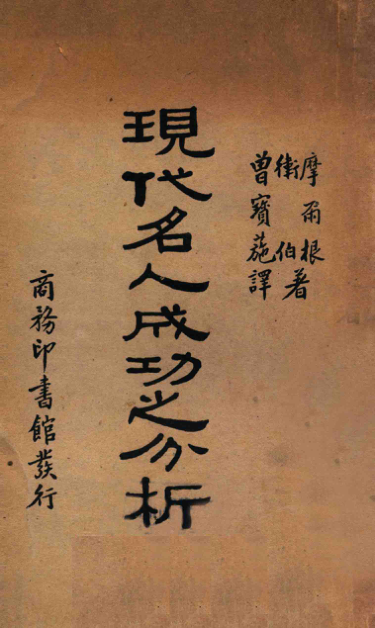 摩爾根
衛伯著
曾寶菡譯
現代名人成功之分析
商務印書館發行